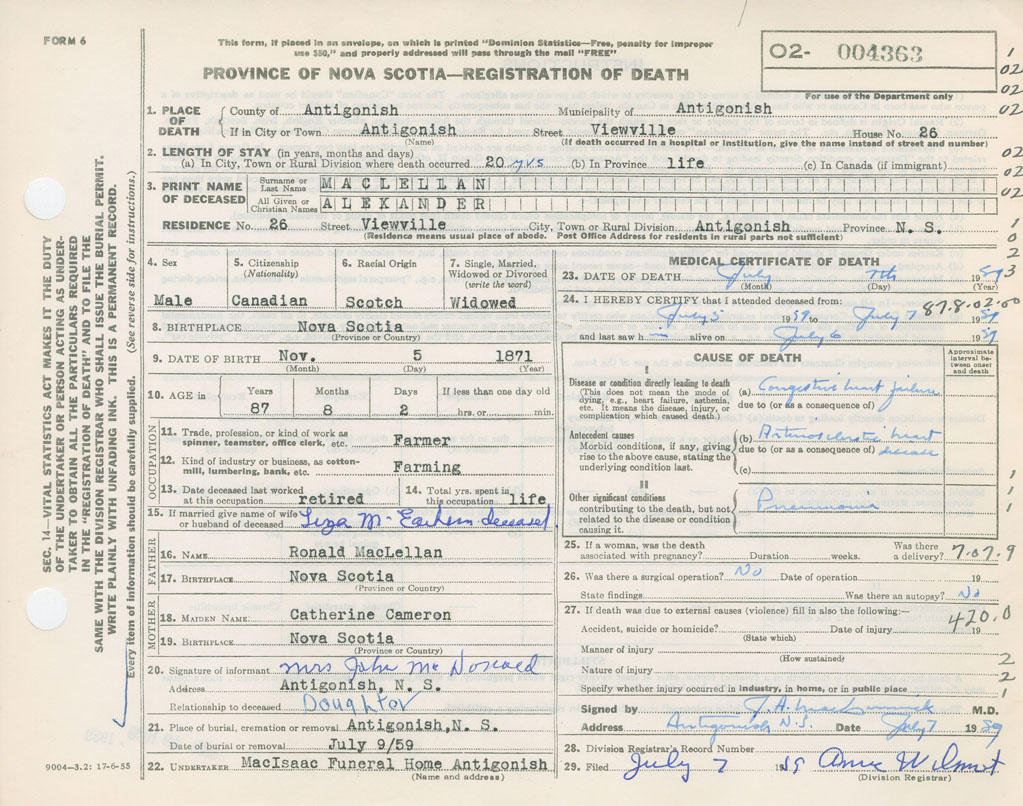 FORM 6
This form, if placed in an envelope, on which is printed "Dominion Statistics—Free, penalty for improper
use $50," and properly addressed will pass through the mail "FREE"
PROVINCE OF NOVA SCOTIA—REGISTRATION OF DEATH
02- 004363
For use of the Department only
1. PLACE OF DEATH
County of Antigonish Municipality of Antigonish
If in City or Town Antigonish Street Viewville House No. 26
(Name) (If death occurred in a hospital or institution, give the name instead of street and number)
2. LENGTH OF STAY (in years, months and days)
(a) In City, Town or Rural Division where death occurred 20 yrs (b) In Province life (c) In Canada (if immigrant)
3. PRINT NAME OF DECEASED
Surname or Last Name MACLELLAN
All Given or Christian Names ALEXANDER
RESIDENCE No. 26 Street Viewville City, Town or Rural Division Antigonish Province N. S.
(Residence means usual place of abode. Post Office Address for residents in rural parts not sufficient)
4. Sex
Male
5. Citizenship (Nationality)
Canadian
6. Racial Origin
Scotch
7. Single, Married, Widowed or Divorced (write the word)
Widowed
8. BIRTHPLACE Nova Scotia
(Province or Country)
9. DATE OF BIRTH Nov. 5 1871
(Month) (Day) (Year)
10. AGE in Years Months Days If less than one day old
87 8 2 hrs. or min.
OCCUPATION
11. Trade, profession, or kind of work as spinner, teamster, office clerk, etc. Farmer
12. Kind of industry or business, as cotton-mill, lumbering, bank, etc. Farming
13. Date deceased last worked at this occupation retired
14. Total yrs. spent in this occupation life
15. If married give name of wife or husband of deceased Liza McEachern deceased
FATHER
16. NAME Ronald MacLellan
17. BIRTHPLACE Nova Scotia
(Province or Country)
MOTHER
18. MAIDEN NAME: Catherine Cameron
19. BIRTHPLACE Nova Scotia
(Province or Country)
20. Signature of informant Mrs John McDonald
Address Antigonish, N. S.
Relationship to deceased Doughter
21. Place of burial, cremation or removal Antigonish, N. S.
Date of burial or removal July 9/59
22. UNDERTAKER MacIsaac Funeral Home Antigonish
(Name and address)
MEDICAL CERTIFICATE OF DEATH
23. DATE OF DEATH July 7th 1959
(Month) (Day) (Year)
24. I HEREBY CERTIFY that I attended deceased from:
July 5 1959 to July 7 1959
87.8.02.00
and last saw him alive on July 6 1959
CAUSE OF DEATH
Approximate interval between onset and death
I
Disease or condition directly leading to death
(This does not mean the mode of dying, e.g., heart failure, asthenia, etc. It means the disease, injury, or complication which caused death.)
(a) Congestive heart failure
due to (or as a consequence of)
Antecedent causes
Morbid conditions, if any, giving rise to the above cause, stating the underlying condition last.
(b) Arteriosclerotic heart
due to (or as a consequence of) disease
(c)
II
Other significant conditions contributing to the death, but not related to the disease or condition causing it.
Pneumonia
25. If a woman, was the death associated with pregnancy? Duration weeks. Was there a delivery?
7.07.9
26. Was there a surgical operation? No Date of operation 19
State findings Was there an autopsy? No
27. If death was due to external causes (violence) fill in also the following:—
420.0
Accident, suicide or homicide? Date of injury 19
(State which)
Manner of injury
(How sustained)
Nature of injury
Specify whether injury occurred in industry, in home, or in public place
Signed by J. A. M.D.
Address Antigonish N.S. Date July 7 1959
28. Division Registrar's Record Number
29. Filed July 7 1959 Anne Wilmot
(Division Registrar)
SEC. 14—VITAL STATISTICS ACT MAKES IT THE DUTY
OF THE UNDERTAKER OR PERSON ACTING AS UNDER-
TAKER TO OBTAIN ALL THE PARTICULARS REQUIRED
IN THE "REGISTRATION OF DEATH" AND TO FILE THE
SAME WITH THE DIVISION REGISTRAR WHO SHALL ISSUE THE BURIAL PERMIT.
WRITE PLAINLY WITH UNFADING INK. THIS IS A PERMANENT RECORD.
Every item of information should be carefully supplied. (See reverse side for instructions.)
9004-3.2: 17-6-55
1
02
02
02
02
02
02
1
0
2
3
1
1
1
2
2
1